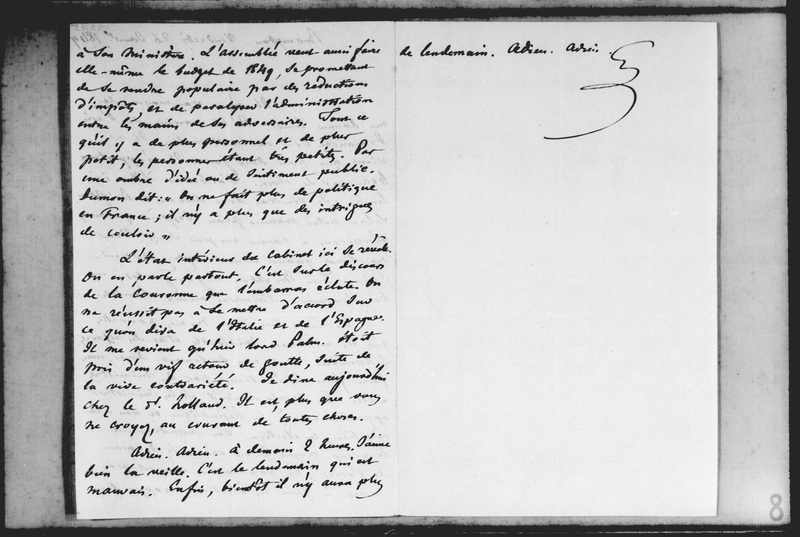 à son Ministère. L'assemblée veut aussi faire
elle-même le budget de 1849, se promettant
de se rendre populaire par des réductions
d'impôts, et de paralyser l'administration
entre les mains de ses adversaires. Tout ce
qu'il y a de plus personnel et de plus
petit, les personnes étant très petites. Pas
une ombre d'idée ou de sentiment public.
Dumon dit : " On ne fait plus de politique
en France ; il n'y a plus que des intrigues
de couloir "
L'état intérieur du Cabinet ici se révèle.
On en parle partout. C'est sur le discours
de la Couronne que l'embarras éclate. On
ne réussit pas à se mettre d'accord sur
ce qu'on dira de l'Italie et de l'Espagne.
Il me revient qu'hier lord Palm. était
pris d'un vif accès de goutte, suite de
la vive contrariété. Je dine aujourd'hui
chez le Dr. Holland. Il est, plus que vous
ne croyez, au courant de toutes choses.
Adieu. Adieu. à demain 2 heures. J'aime
bien la veille. C'est le lendemain qui est
mauvais. Enfin, bientôt il n'y aura plus
de lendemain. Adieu. Adieu.
8